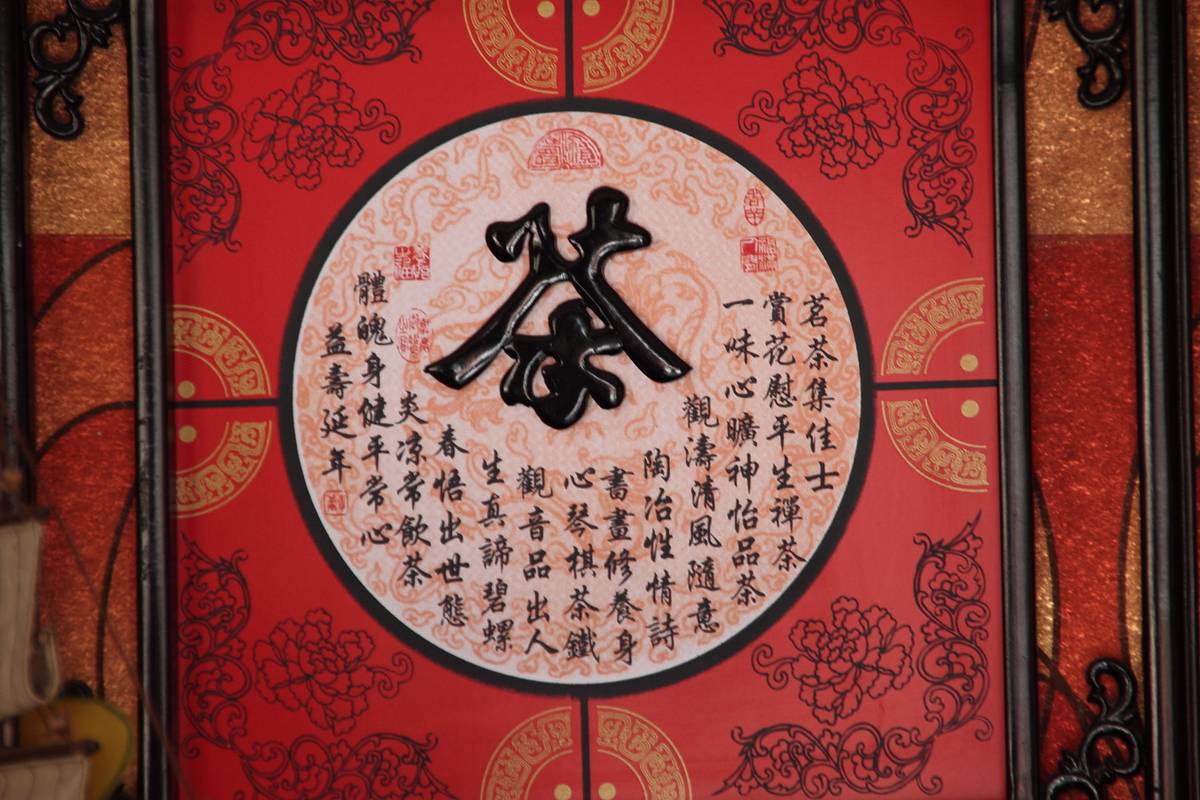 茶
茗茶集佳士
賞花慰平生禪茶
一味心曠神怡品茶
觀濤清風隨意
陶冶性情詩
書畫修養身
心琴棋茶鐵
觀音品出人
生真諦碧螺
春悟出世態
炎凉常飲茶
體魄身健平常心
益壽延年